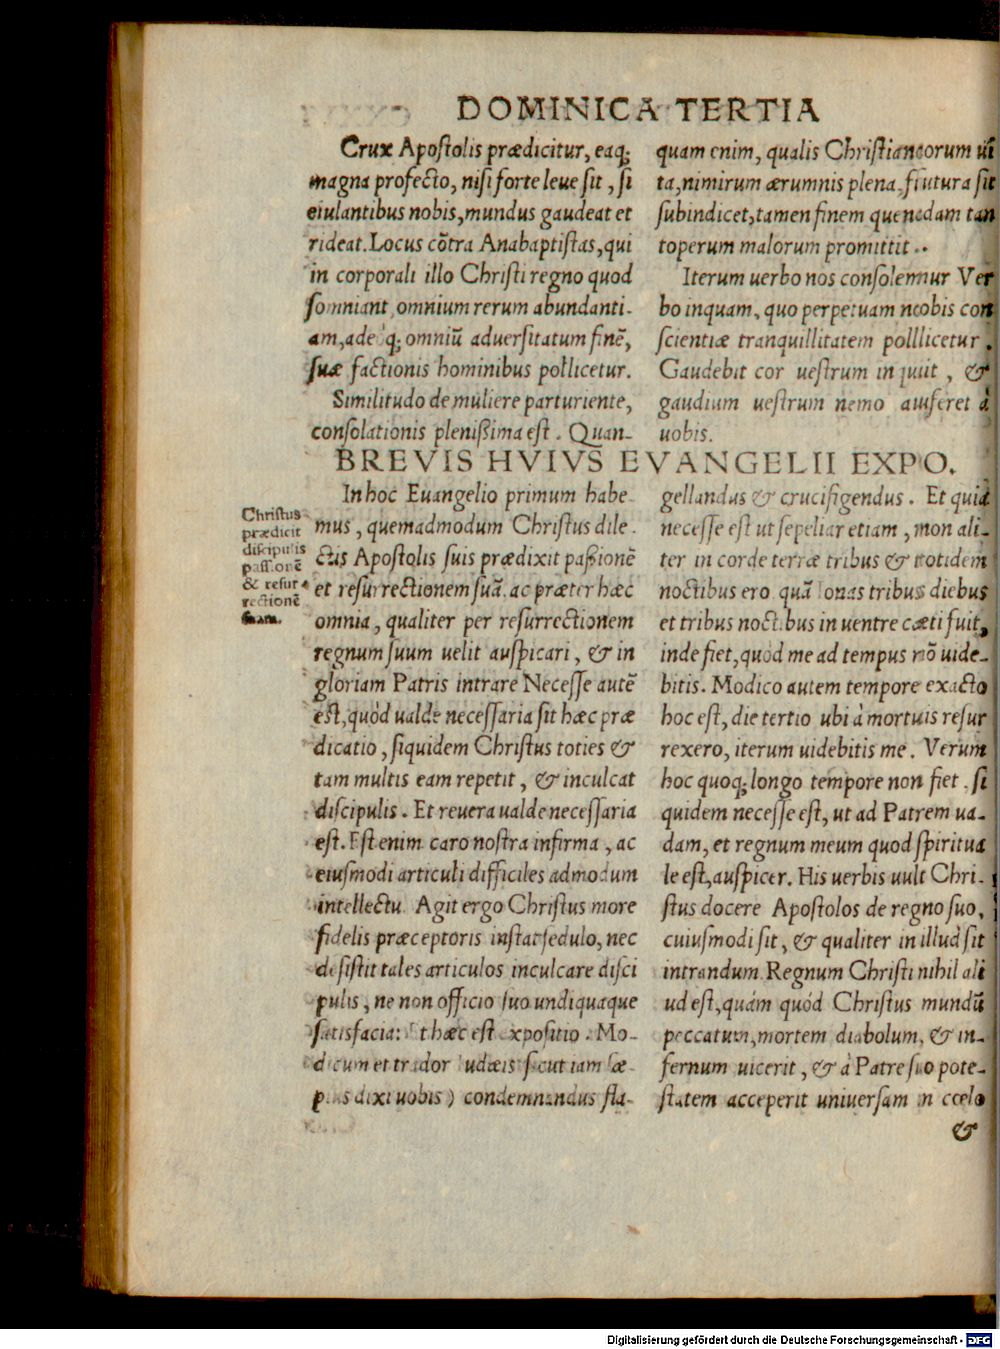 DOMINICA TERTIA
Crux Apostolis prædicitur, eaq;
magna profecto, nisi forte leue sit, si
eiulantibus nobis, mundus gaudeat et
rideat. Locus cõtra Anabaptistas, qui
in corporali illo Christi regno quod
somniant, omnium rerum abundanti-
am, adeoq; omniũ aduersitatum finẽ,
suæ factionis hominibus pollicetur.
Similitudo de muliere parturiente,
consolationis plenißima est. Quan-
quam enim, qualis Christianorum ui
ta, nimirum ærumnis plena, futura sit
subindicet, tamen finem quendam tan
toperum malorum promittit.
Iterum uerbo nos consolemur Ver
bo inquam, quo perpetuam nobis con
scientiæ tranquillitatem polllicetur.
Gaudebit cor uestrum inquit, &
gaudium uestrum nemo auferet à
uobis.
BREVIS HVIVS EVANGELII EXPO.
Christus
prædicit
discipulis
passionẽ
& resur
rectionẽ
suam.
In hoc Euangelio primum habe-
mus, quemadmodum Christus dile-
ctis Apostolis suis prædixit paßionẽ
et resurrectionem suã, ac præter hæc
omnia, qualiter per resurrectionem
regnum suum uelit auspicari, & in
gloriam Patris intrare Necesse autẽ
est, quòd ualde necessaria sit hæc præ
dicatio, siquidem Christus toties &
tam multis eam repetit, & inculcat
discipulis. Et reuera ualde necessaria
est. Est enim caro nostra infirma, ac
eiusmodi articuli difficiles admodum
intellectu. Agit ergo Christus more
fidelis præceptoris instat sedulo, nec
desistit tales articulos inculcare disci
pulis, ne non officio suo undiquaque
satisfaciat. Et hæc est expositio. Mo-
dicum et trador Iudæis (sicut iam sæ-
pius dixi uobis) condemnandus fla-
gellandus & crucifigendus. Et quia
necesse est ut sepeliar etiam, non ali-
ter in corde terræ tribus & totidem
noctibus ero quã Ionas tribus diebus
et tribus noctibus in uentre cæti fuit,
inde fiet, quòd me ad tempus nõ uide-
bitis. Modico autem tempore exacto
hoc est, die tertio ubi à mortuis resur
rexero, iterum uidebitis me. Verum
hoc quoq; longo tempore non fiet, si
quidem necesse est, ut ad Patrem ua-
dam, et regnum meum quod spiritua
le est, auspicer. His uerbis uult Chri-
stus docere Apostolos de regno suo,
cuiusmodi sit, & qualiter in illud sit
intrandum. Regnum Christi nihil ali
ud est, quàm quòd Christus mundũ
peccatum, mortem diabolum, & in-
fernum uicerit, & à Patre suo pote-
statem acceperit uniuersam in cœlo
&
Digitalisierung gefördert durch die Deutsche Forschungsgemeinschaft - DFG